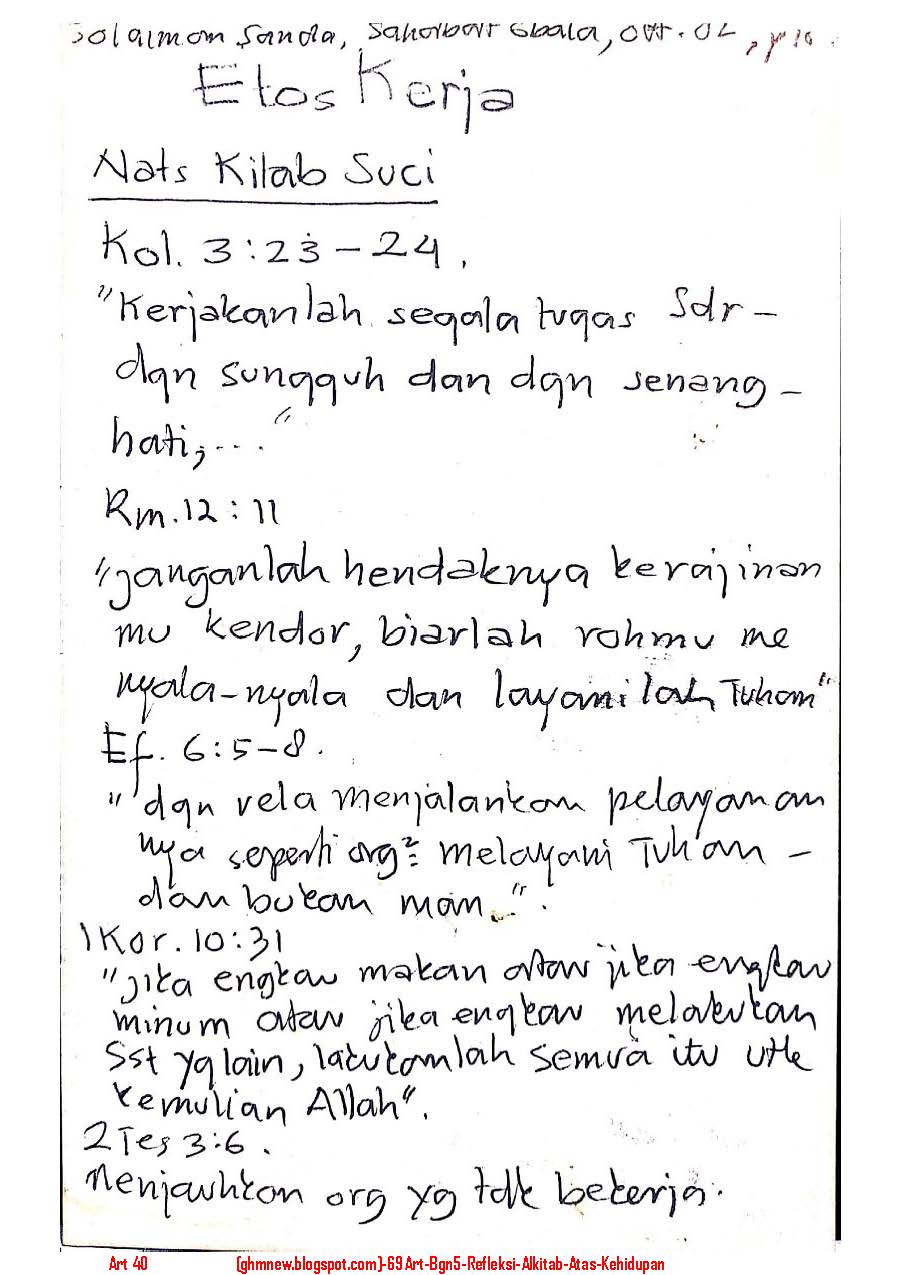 Solaiman Sanda, Sahabat Gbala, Okt. 02, p 10.
Etos Kerja
Nats Kitab Suci
Kol. 3:23-24.
"Kerjakanlah segala tugas Sdr-
dgn sungguh dan dgn senang-
hati,..."
Rm.12:11
"janganlah hendaknya kerajinan
mu kendor, biarlah rohmu me
nyala-nyala dan layanilah Tuhan"
Ef. 6:5-8.
"dgn rela menjalankan pelayanan
nya seperti org² melayani Tuhan-
dan bukan man..".
1 Kor. 10:31
"jika engkau makan atau jika engkau
minum atau jika engkau melakukan
Sst yg lain, lakukanlah semua itu utk
kemulian Allah".
2 Tes 3:6.
Menjauhkan org yg tdk bekerja.
Art 40 [ghmnew.blogspot.com]-69 Art-Bgn5-Refleksi-Alkitab-Atas-Kehidupan